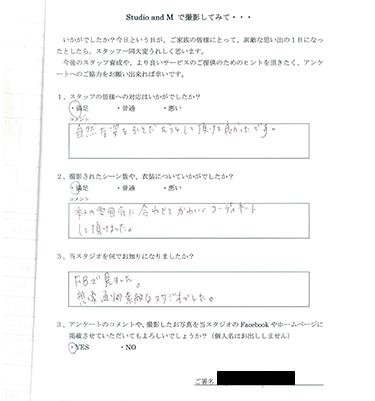 Studio and M で撮影してみて・・・
いかがでしたか？今日という日が、ご家族の皆様にとって、素敵な思い出の１日になっ
たとしたら、スタッフ一同大変うれしく思います。
今後のスタッフ育成や、より良いサービスのご提供のためのヒントを頂きたく、アンケ
ートへのご協力をお願い出来れば幸いです。
１、スタッフの皆様への対応はいかがでしたか？
・満足 ・普通 ・悪い
コメント
自然な姿を して頂けて良かったです。
２、撮影されたシーン数や、衣装についていかがでしたか？
・満足 ・普通 ・悪い
コメント
本人の雰囲気に合わせてかわいくコーディネート
して頂けました。
３、当スタジオを何でお知りになりましたか？
FBで見ました。
想像通り素敵なスタジオでした。
３、アンケートのコメントや、撮影したお写真を当スタジオの Facebook やホームページに
掲載させていただいてもよろしいでしょうか？（個人名はお出ししません）
・YES ・NO
ご署名